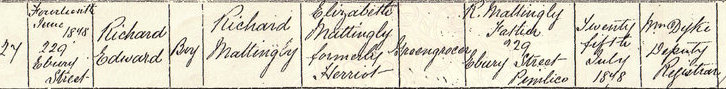 27
Fourteenth
June 1848
229
Ebury
Street
Richard
Edward
Boy
Richard
Mattingly
Elizabeth
Mattingly
formerly
Herriot
Greengrocer
R. Mattingly
Father
229
Ebury Street
Pimlico
Twenty
fifth
July
1848
Wm Dyke
Deputy
Registrar